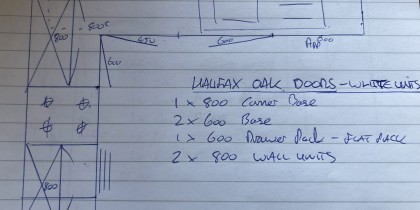 800
800
650
600
App 600
600
HALIFAX OAK DOORS - WHITE UNITS
1 x 800 Corner Base
2 x 600 Base
1 x 600 Drawer Pack - FLAT PACK
2 x 800 WALL UNITS
800